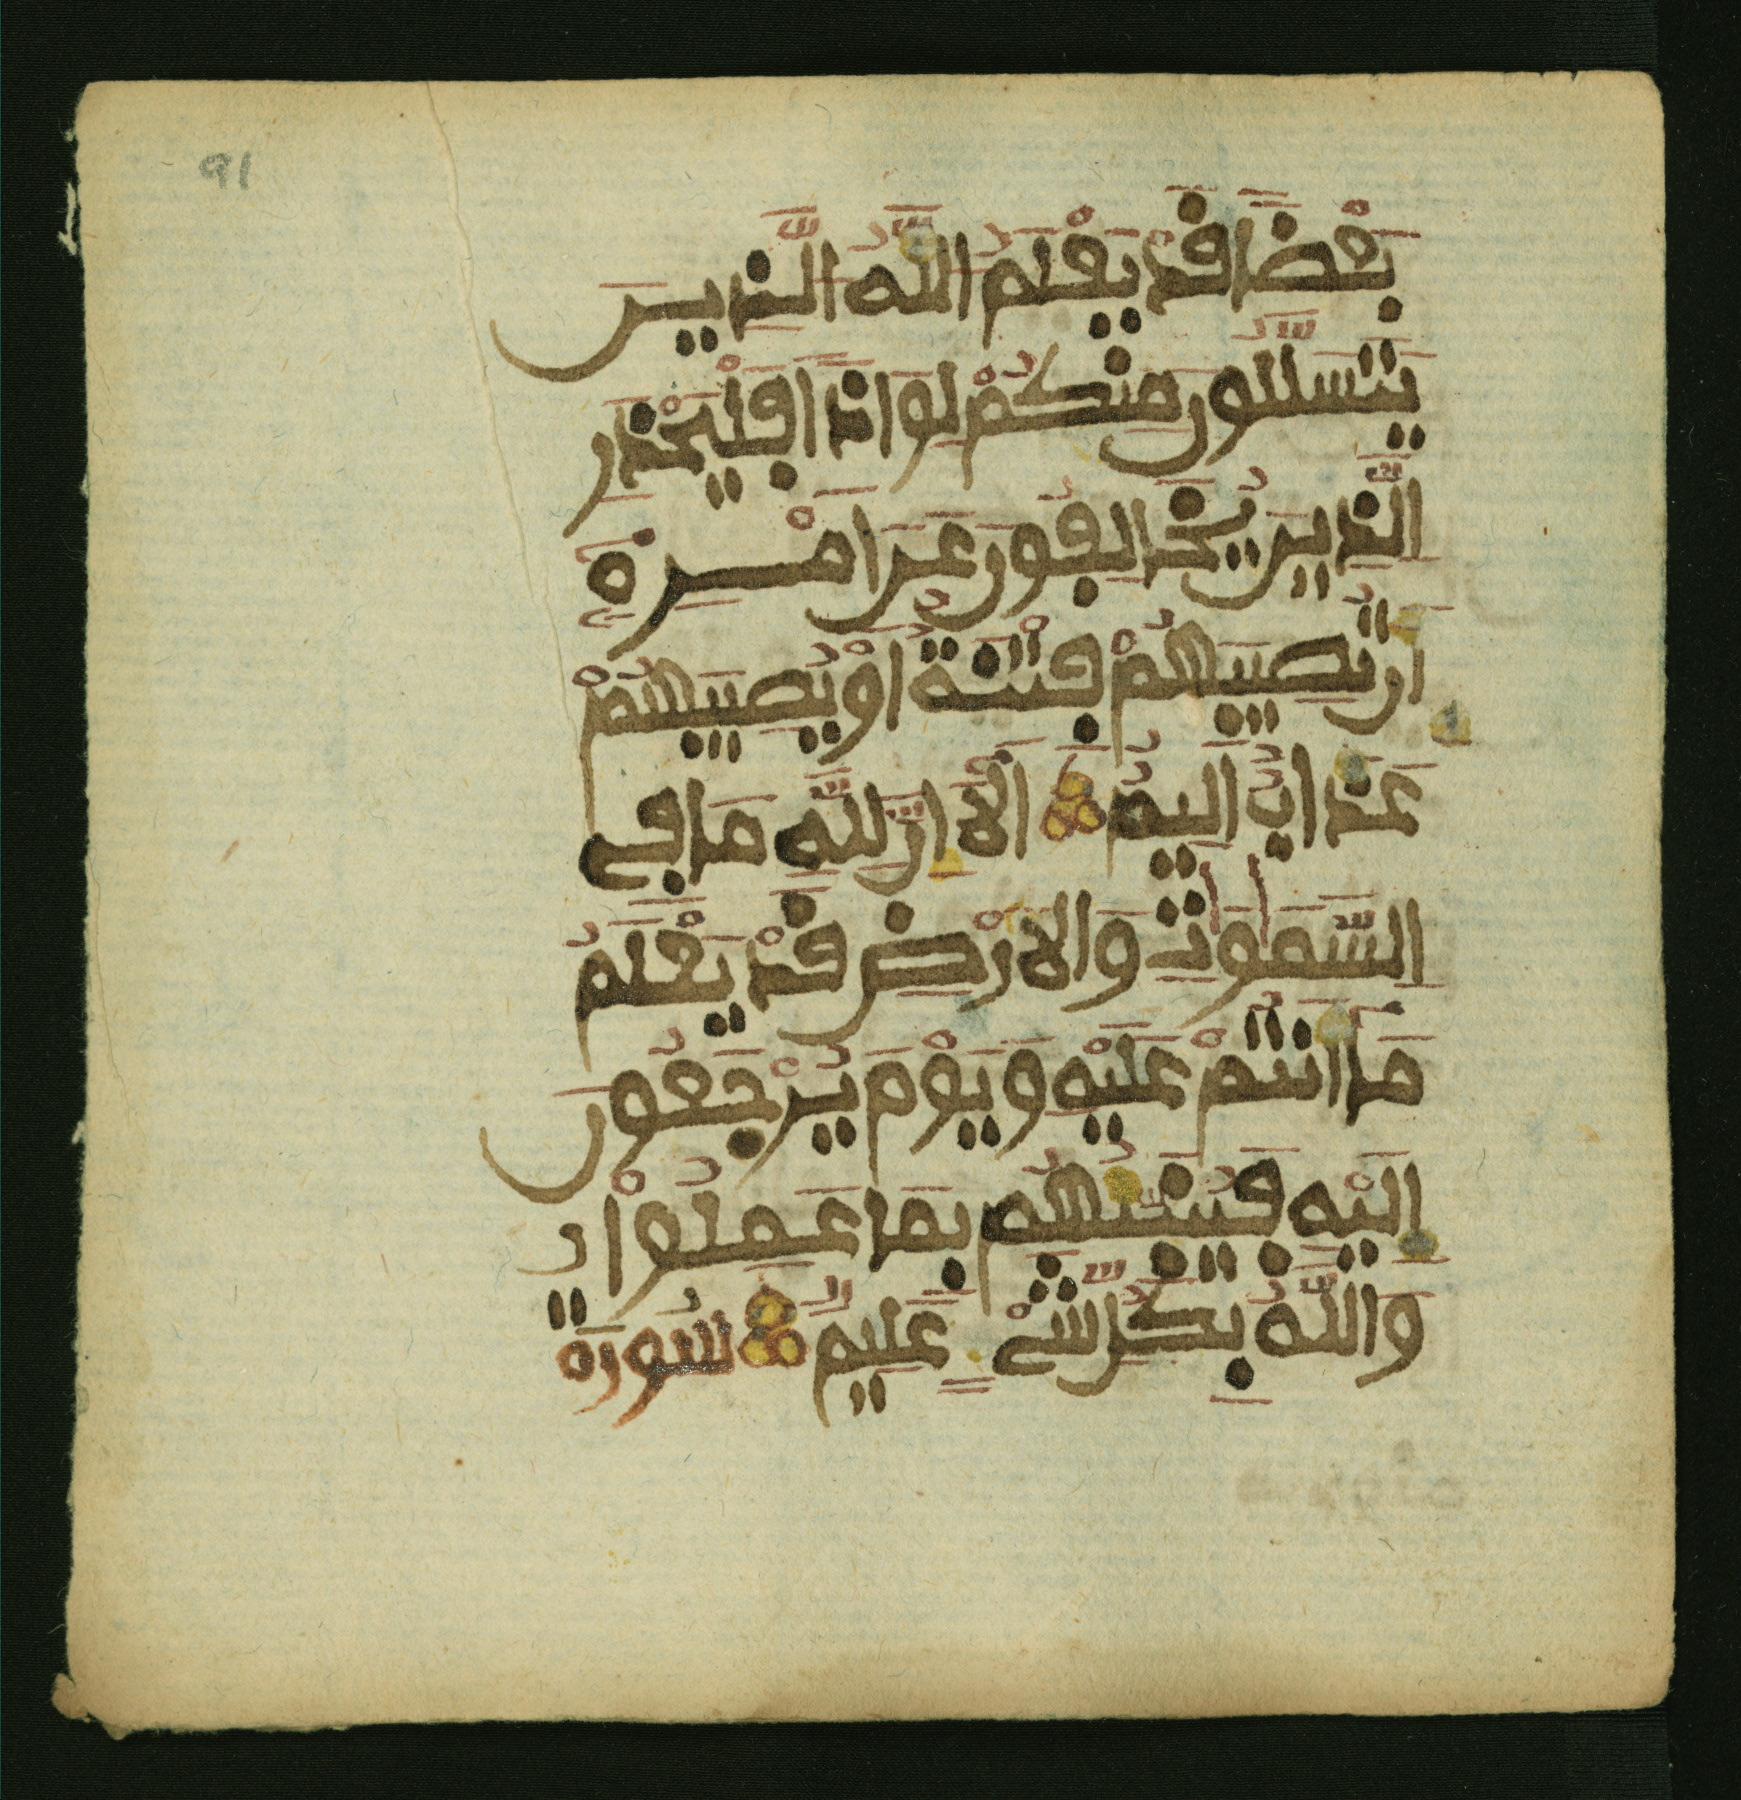 91
بَعْضًا قَدْ يَعْلَمُ اللَّهُ الَّذِينَ
يَتَسَلَّلُونَ مِنكُمْ لِوَاذًا فَلْيَحْذَرِ
الَّذِينَ يُخَالِفُونَ عَنَ امْرِهِ
أَن تُصِيبَهُمْ فِتْنَةٌ اَوْ يُصِيبَهُمْ
عَذَابٌ اَلِيمٌ أَلَا إِنَّ لِلَّهِ مَا فِي
السَّمَوَتِ وَالَارْضِ قَدْ يَعْلَمُ
مَا أَنتُمْ عَلَيْهِ وَيَوْمَ يُرْجَعُونَ
إِلَيْهِ فَيُنَبِّئُهُم بِمَا عَمِلُوا
وَاللَّهُ بِكُلِّ شَيْءٍ عَلِيمٌ سُورَة